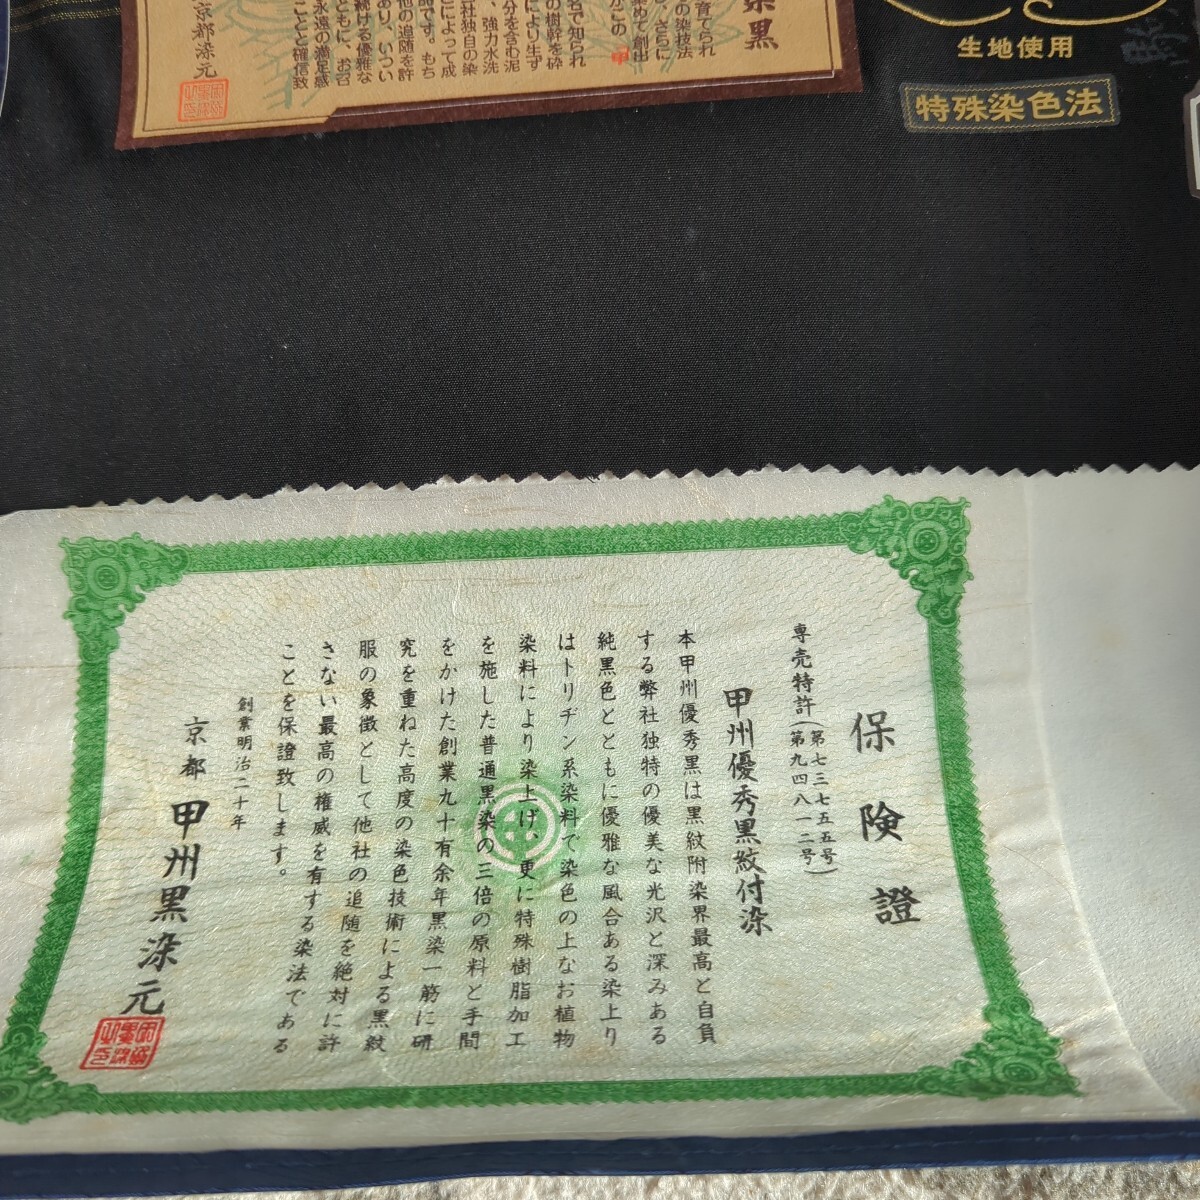 染黒
育てられ
の染技法
、さらに
染めて創出
かこの
名で知られ
の樹幹を砕
分を含む泥
により生ず
、強力水洗
社独自の染
とによって成
品です。もち
他の追随を許
あり、いつい
続ける優雅な
ともに、お召
永遠の満足感
ことと確信致
京都染元
生地使用
特殊染色法
保険證
専売特許(第七三七五五号)
(第九四八一二号)
甲州優秀黒紋付染
本甲州優秀黒は黒紋附染界最高と自負
する弊社独特の優美な光沢と深みある
純黒色とともに優雅な風合ある染上り
はトリヂン系染料で染色の上なお植物
染料により染上げ、更に特殊樹脂加工
を施した普通黒染の三倍の原料と手間
をかけた創業九十有余年黒染一筋に研
究を重ねた高度の染色技術による黒紋
服の象徴として他社の追随を絶対に許
さない最高の権威を有する染法である
ことを保證致します。
創業明治二十年
京都 甲州黒染元